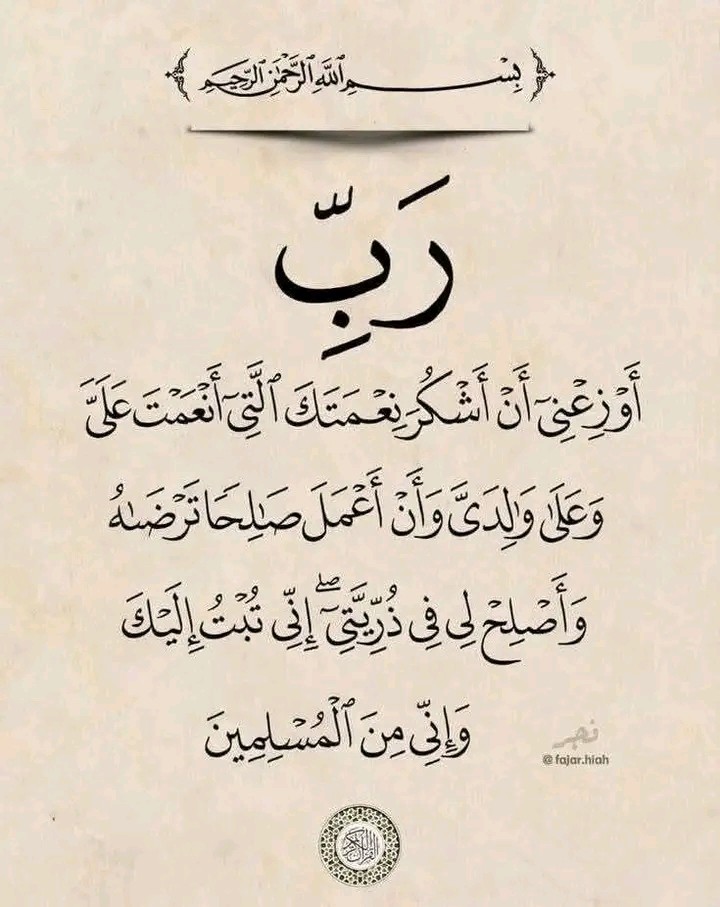 بِسْمِ ٱللَّهِ ٱلرَّحْمَٰنِ ٱلرَّحِيمِ
رَبِّ
أَوْزِعْنِىٓ أَنْ أَشْكُرَ نِعْمَتَكَ ٱلَّتِىٓ أَنْعَمْتَ عَلَىَّ
وَعَلَىٰ وَٰلِدَىَّ وَأَنْ أَعْمَلَ صَٰلِحًا تَرْضَىٰهُ
وَأَصْلِحْ لِى فِى ذُرِّيَّتِىٓ ۖ إِنِّى تُبْتُ إِلَيْكَ
وَإِنِّى مِنَ ٱلْمُسْلِمِينَ
فجر
@fajar.hiah
القرآن الكريم